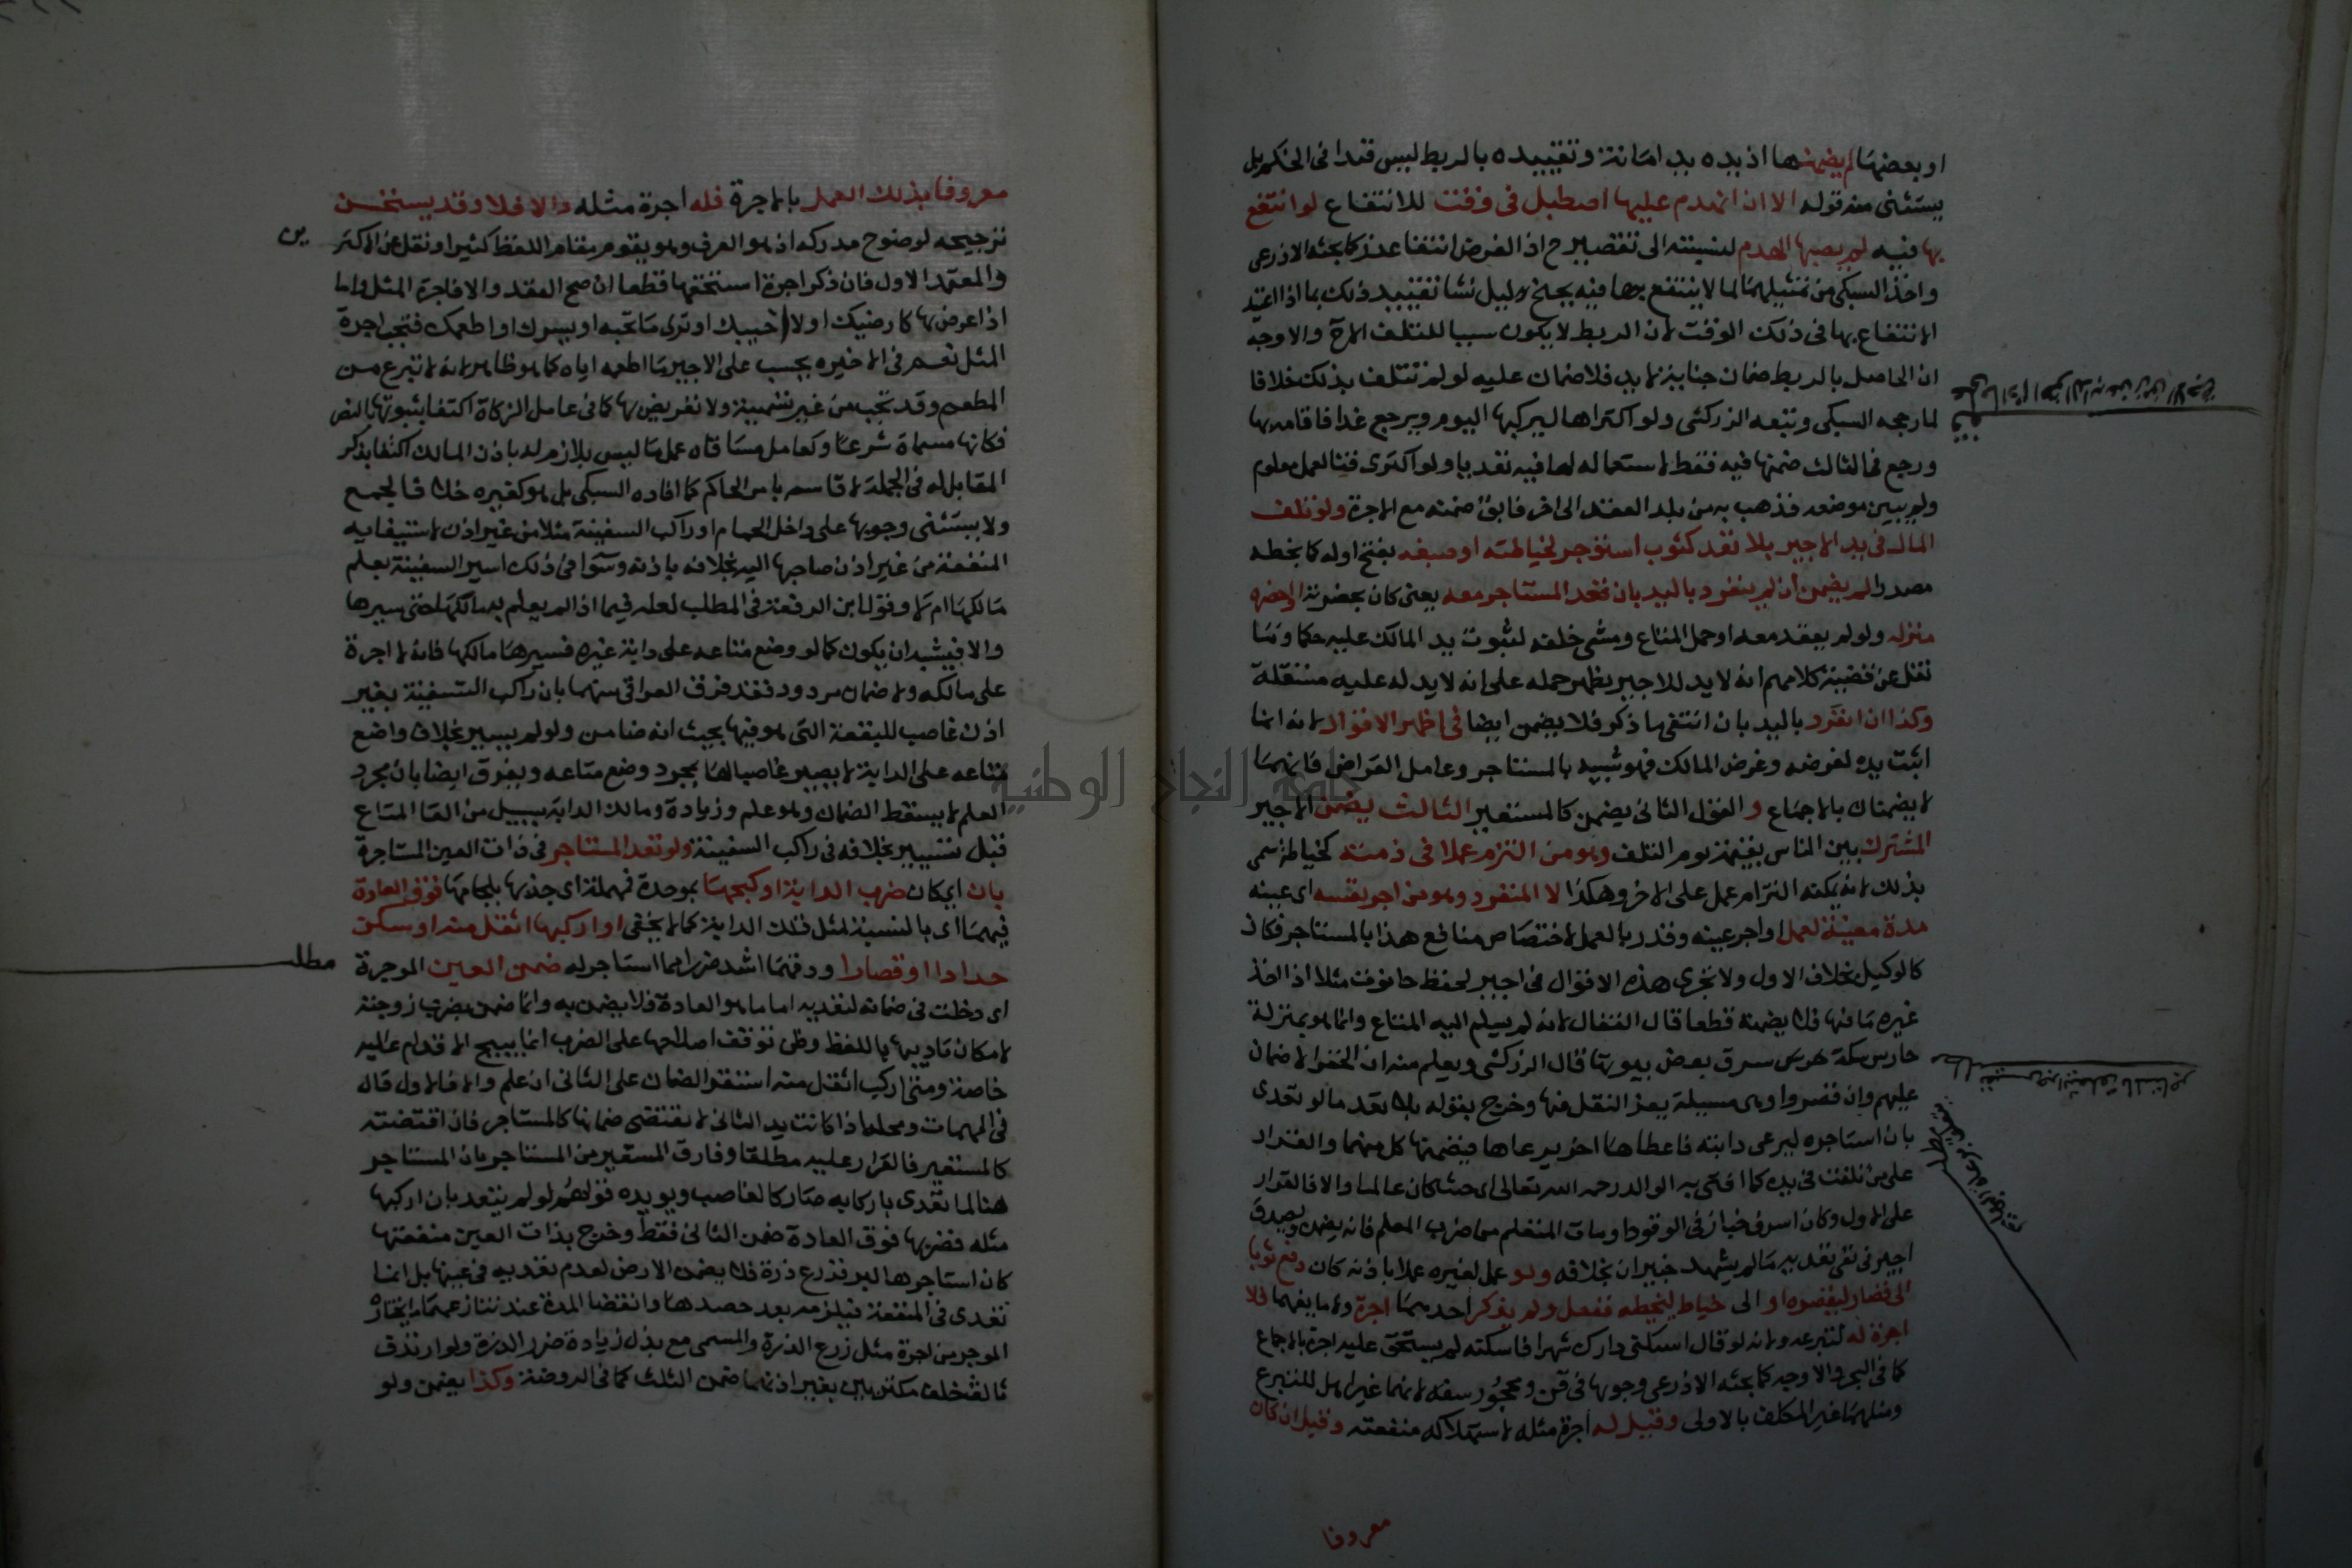 او بعضها لم يضمنها اذ يده يد امانة وتقييده بالربط ليس قيدا في الحكم بل
يستثنى منه قوله الا ان انهدم عليها اصطبل في وقت للانتفاع لو انتفع
بها فيه لم يصبها الهدم لنسبته الى تقصير ح اذ الفرض انتفا عذر كما بحثه الاذرعي
واخذ السبكي من تمثيلهما لما لا ينتفع بها فيه بجنح ليل شتا تقييد ذلك بما اذا اعتيد
الانتفاع بها في ذلك الوقت لان الربط لا يكون سببا للتلف الا ح والاوجه
ان الحاصل بالربط ضمان جناية لا يد فلا ضمان عليه لو لم تتلف بذلك خلافا
لما رجحه السبكي وتبعه الزركشي ولو اكتراها ليركبها اليوم ويرجع غدا فاقام بها
ورجع في الثالث ضمنها فيه فقط لاستعماله لها فيه تعديا ولو اكترى قنا لعمل معلوم
ولم يبين موضعه فذهب به من بلد العقد الى اخر فابق ضمنه مع الاجرة ولو تلف
المال في يد الاجير بلا تعد كثوب استؤجر لخياطته او صبغه بفتح اوله كما بخطه
مصدرا لم يضمن ان لم ينفرد باليد بان قعد المستاجر معه يعني كان بحضرته او احضره
منزله ولو لم يقعد معه او حمل المتاع ومشى خلفه لثبوت يد المالك عليه حكما وما
نقل عن قضية كلامهم انه لا يد للاجير يظهر حمله على انه لا يد له عليه مستقلة
وكذا ان انفرد باليد بان انتفى ما ذكر فلا يضمن ايضا في اظهر الاقوال لانه انما
اثبت يده لغرضه وغرض المالك فهو شبيه بالمستاجر وعامل القراض فانهما
لا يضمنان بالاجماع و القول الثاني يضمن كالمستعير الثالث يضمن الاجير
المشترك بين الناس بقيمة يوم التلف وهو من التزم عملا في ذمته كخياطة سمي
بذلك لانه يمكنه التزام عمل على الاخر وهكذا لا المنفرد وهو من اجر نفسه اي عينه
مدة معينة لعمل او اجر عينه وقدر بالعمل لاختصاص منافع هذا بالمستاجر فكان
كالوكيل بخلاف الاول ولا تجري هذه الاقوال في اجير لحفظ حانوت مثلا اذا اخذ
غيره ما فيها فلا يضمنه قطعا قال القفال لانه لم يسلم اليه المتاع وانما هو بمنزلة
حارس سكة سرق بعض بيوتها قال الزركشي ويعلم منه ان الخفرا لا ضمان
عليهم وان قصروا وهي مسيلة يعز النقل فيها وخرج بقوله بلا تعد ما لو تعدى
بان استاجره ليرعى دابته فاعطاها اخر يرعاها فيضمنها كل منهما والقرار
على من تلفت في يده كما افتى به الوالد رحمه الله تعالى اي حيث كان عالما والا فالقرار
على الاول وكان اسرف خباز في الوقود او مات المتعلم من ضرب المعلم فانه يضمن ويصدق
اجير في نفي تعديه ما لم يشهد خبيران بخلافه ولو عمل لغيره عملا باذنه كان دفع ثوبا
الى قصار ليقصره او الى خياط ليخيطه ففعل ولم يذكر احدهما اجرة ولا ما يفهمها فلا
اجرة له لتبرعه ولانه لو قال اسكني دارك شهرا فاسكنه لم يستحق عليه اجرة بالاجماع
كما في البحر والاوجه كما بحثه الاذرعي وجوبها في قن ومحجور سفه لانهما غير اهل للتبرع
ومثلهما غير المكلف بالاولى وقيل له اجرة مثله لاستهلاكه منفعته وقيل ان كان
معروفا
معروفا بذلك العمل بالاجرة فله اجرة مثله والا فلا وقد يستحسن
ترجيحه لوضوح مدركه اذ هو العرف وهو يقوم مقام اللفظ كثيرا ونقل عن الاكثر
والمعتمد الاول فان ذكر اجرة استحقها قطعا ان صح العقد والا فاجرة المثل واما
اذا عرض بها كارضيك او لا اخيبك او ترى ما تحبه او يسرك او اطعمك فتجب اجرة
المثل نعم في الاخيره يحسب على الاجير ما اطعمه اياه كما هو ظاهر لانه لا تبرع من
المطعم وقد تجب من غير تسمية ولا تعريض بها كما في عامل الزكاة اكتفا بثبوتها بالنص
فكانها مسماة شرعا وكعامل مساقاه عمل ما ليس بلازم له باذن المالك اكتفا بذكر
المقابل له في الجملة لا قاسم بامر الحاكم كما افاده السبكي بل هو كغيره خلافا لجمع
ولا يستثنى وجوبها على داخل الحمام او راكب السفينة مثلا من غير اذن لاستيفايه
المنفعة من غير اذن صاحبها اليه بخلافه باذنه وسوا في ذلك اسير السفينة بعلم
مالكها ام لا وقول ابن الرفعة في المطلب لعله فيما اذا لم يعلم به مالكها حتى سيرها
والا فيشبه ان يكون كما لو وضع متاعه على دابة غيره فسيرها مالكها فانه لا اجرة
على مالكه ولا ضمان مردود فقد فرق العراقي بينهما بان راكب السفينة بغير
اذن غاصب للبقعة التي هو فيها بحيث انه ضامن ولو لم يسير بخلاف واضع
متاعه على الدابة لا يصير غاصبا لها بمجرد وضع متاعه ويفرق ايضا بان مجرد
العلم لا يسقط الضمان وهو علم وزيادة ومالك الدابة بسبيل من القا المتاع
قبل تسيير بخلافه في راكب السفينة ولو تعد المستاجر في ذات العين المستاجرة
بان اي كان ضرب الدابة او كبحها بموحدة فمهملة اي جذبها بلجامها فوق العادة
فيهما اي بالنسبة لمثل تلك الدابة كما لا يخفى او اركبها اثقل منه او سكن
حدادا او قصارا ودقهما اشد ضررا مما استاجر له ضمن العين الموجرة
اي دخلت في ضمانه لتعديه اما ما هو العادة فلا يضمن به وانما ضمن بضرب زوجته
لامكان تاديبها باللفظ وظن توقف اصلاحها على الضرب انما يبيح الاقدام عليه
خاصة ومتى اركب اثقل منه استقر الضمان على الثاني ان علم والا فالاول قال
في المهمات ومحله اذا كانت يد الثاني لا تقتضي ضمانها كالمستاجر فان اقتضته
كالمستعير فالقرار عليه مطلقا وفارق المستعير من المستاجر بان المستاجر
هنا لما تعدى باركابه صار كالغاصب ويويده قولهم لو لم يتعد بان اركبها
مثله فضربها فوق العادة ضمن الثاني فقط وخرج بذات العين منفعتها
كان استاجرها لبر فزرع ذرة فلا يضمن الارض لعدم تعديه في عينها بل انما
تعدى في المنفعة فيلزمه بعد حصدها وانقضا المدة عند تنازعهما ما يختاره
الموجر من اجرة مثل زرع الذرة والمسمى مع بدل زيادة ضرر الذرة ولو ارتدف
ثالث خلف مكتريين بغير اذنهما ضمن الثلث كما في الروضة وكذا يضمن ولو
مطلـ